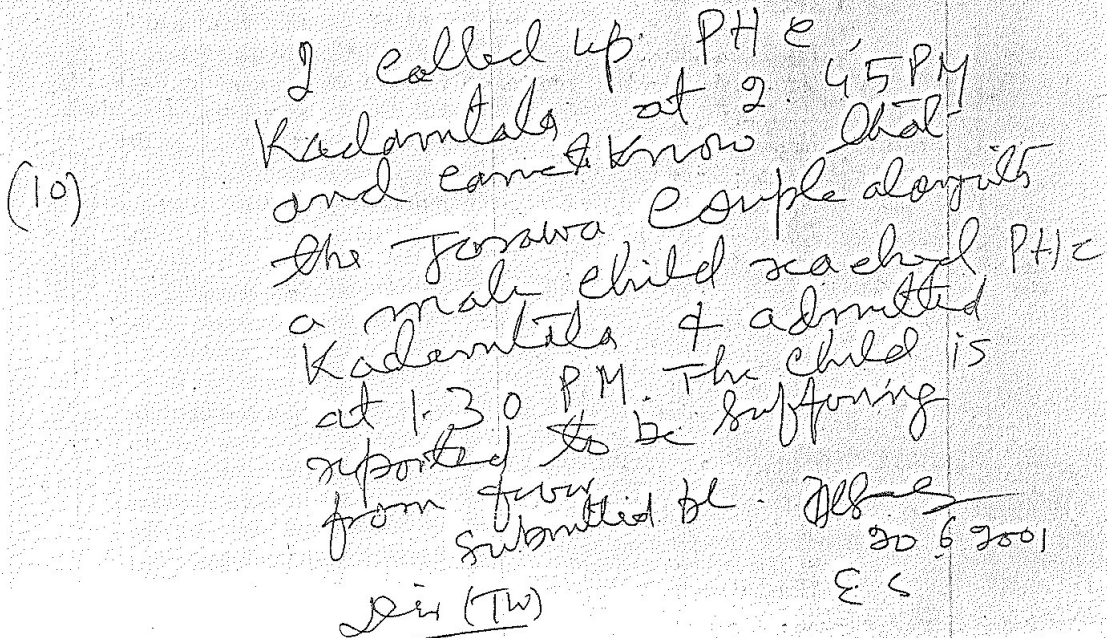 I called up PHC,
Kadamtala at 2.45 PM
and came to know that
(10)
the Jarawa couple alongwith
a male child reached PHC
Kadamtala & admitted
at 1.30 PM. The child is
reported to be suffering
from fever
submitted pl.
20 6 2001
Dir (TW)